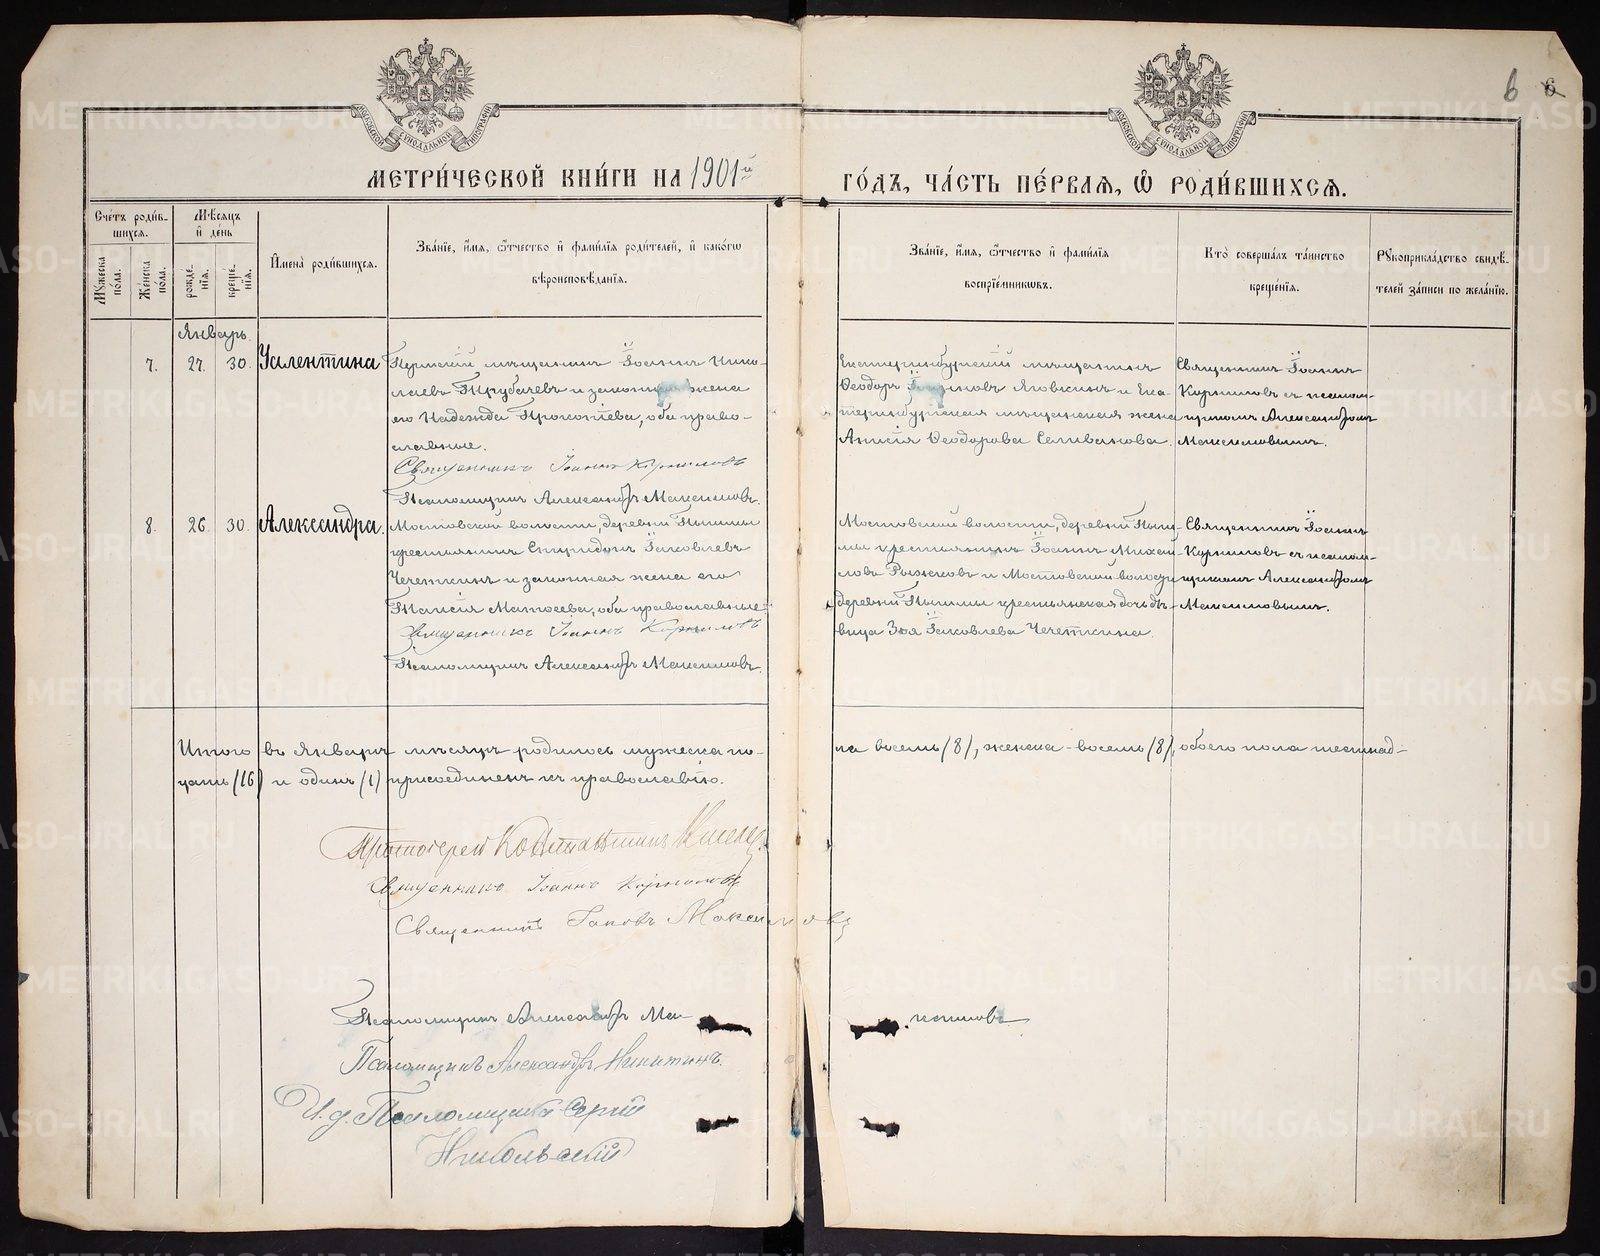 6 6
МОСКОВСКОЙ СѴНОДАЛЬНОЙ ТИПОГРАФІИ
МОСКОВСКОЙ СѴНОДАЛЬНОЙ ТИПОГРАФІИ
МЕТРИ́ЧЕСКОЙ КНИ́ГИ НА 1901й ГО́ДЪ, ЧА́СТЬ ПЕ́РВАЯ, Ѡ҆ РОДИ́ВШИХСЯ.
Сче́тъ роди́в-
шихся.
Мѣ́сяцъ
и҆ де́нь
Мꙋ́жеска по́ла.
Же́нска по́ла.
рожде́-
нїя.
креще́-
нїя.
И҆мена̀ роди́вшихся.
Зва́нїе, и҆́мя, ѻ҆́тчество и҆ фами́лїя роди́телей, и҆ како́гѡ
вѣроисповѣ́данїя.
Зва́нїе, и҆́мя, ѻ҆́тчество и҆ фами́лїя
воспрїе́мникѡвъ.
Кто̀ соверша́лъ та́инство
креще́нїя.
Рꙋкоприкла́дство свидѣ́-
телей за́писи по жела́нїю.
Январь
7. 27. 30. Валентина
Пермскій мѣщанинъ Іоаннъ Нико-
лаевъ Трубачевъ и законная жена
его Надежда Прокопіева, оба право-
славные.
Священникъ Іоаннъ Корниловъ
Псаломщикъ Александръ Максимовъ.
Екатеринбургскій мѣщанинъ
Ѳеодоръ Яговкинъ и Ека-
теринбургская мѣщанская жена
Анисія Ѳеодорова Селиванова.
Священникъ Іоаннъ
Корниловъ съ псалом-
щикомъ Александромъ
Максимовымъ.
8. 26. 30. Александра.
Мостовской волости, деревни Пышмы
крестьянинъ Спиридонъ Іаковлевъ
Чечеткинъ и законная жена его
Таисія Матѳеева, оба православные.
Священникъ Іоаннъ Корниловъ
Псаломщикъ Александръ Максимовъ.
Мостовской волости, деревни Пыш-
мы крестьянинъ Іоаннъ Михай-
ловъ Рыжковъ и Мостовской волости
деревни Пышмы крестьянская дочь дѣ-
вица Зоя Іаковлева Чечеткина.
Священникъ Іоаннъ
Корниловъ съ псалом-
щикомъ Александромъ
Максимовымъ.
Итого въ Январѣ мѣсяцѣ родилось мужеска по-ла восемь (8), женска - восемь (8), обоего пола шестнад-
цать (16) и одинъ (1) присоединенъ къ православію.
Протоіерей Константинъ
Священникъ Іоаннъ Корниловъ
Священникъ Іаковъ Максимовъ
Псаломщикъ Александръ Мак-симовъ
Псаломщикъ Александръ Никитинъ.
И. д. Псаломщика Сергій
Никольскій
METRIKI.GASO-URAL.RU